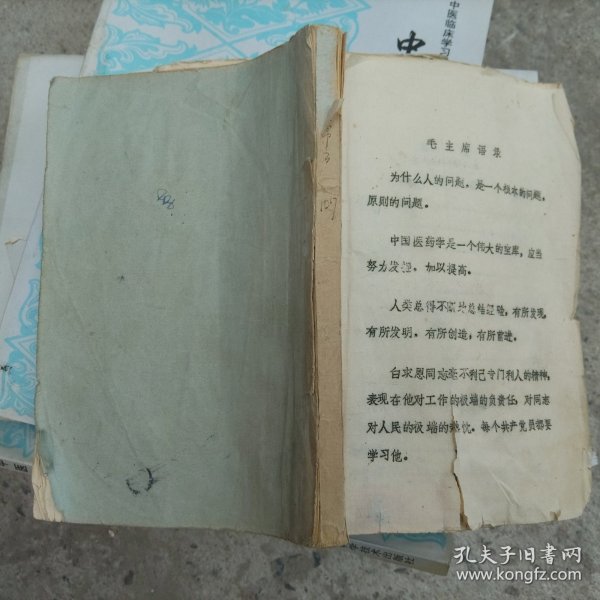 中医临床学习
中
毛主席语录
为什么人的问题，是一个根本的问题，
原则的问题。
中国医药学是一个伟大的宝库，应当
努力发掘，加以提高。
人类总得不断地总结经验，有所发现，
有所发明，有所创造，有所前进。
白求恩同志毫不利己专门利人的精神，
表现在他对工作的极端的负责任，对同志
对人民的极端的热忱。每个共产党员都要
学习他。
学技术出版社
孔夫子旧书网
www.kongfz.com